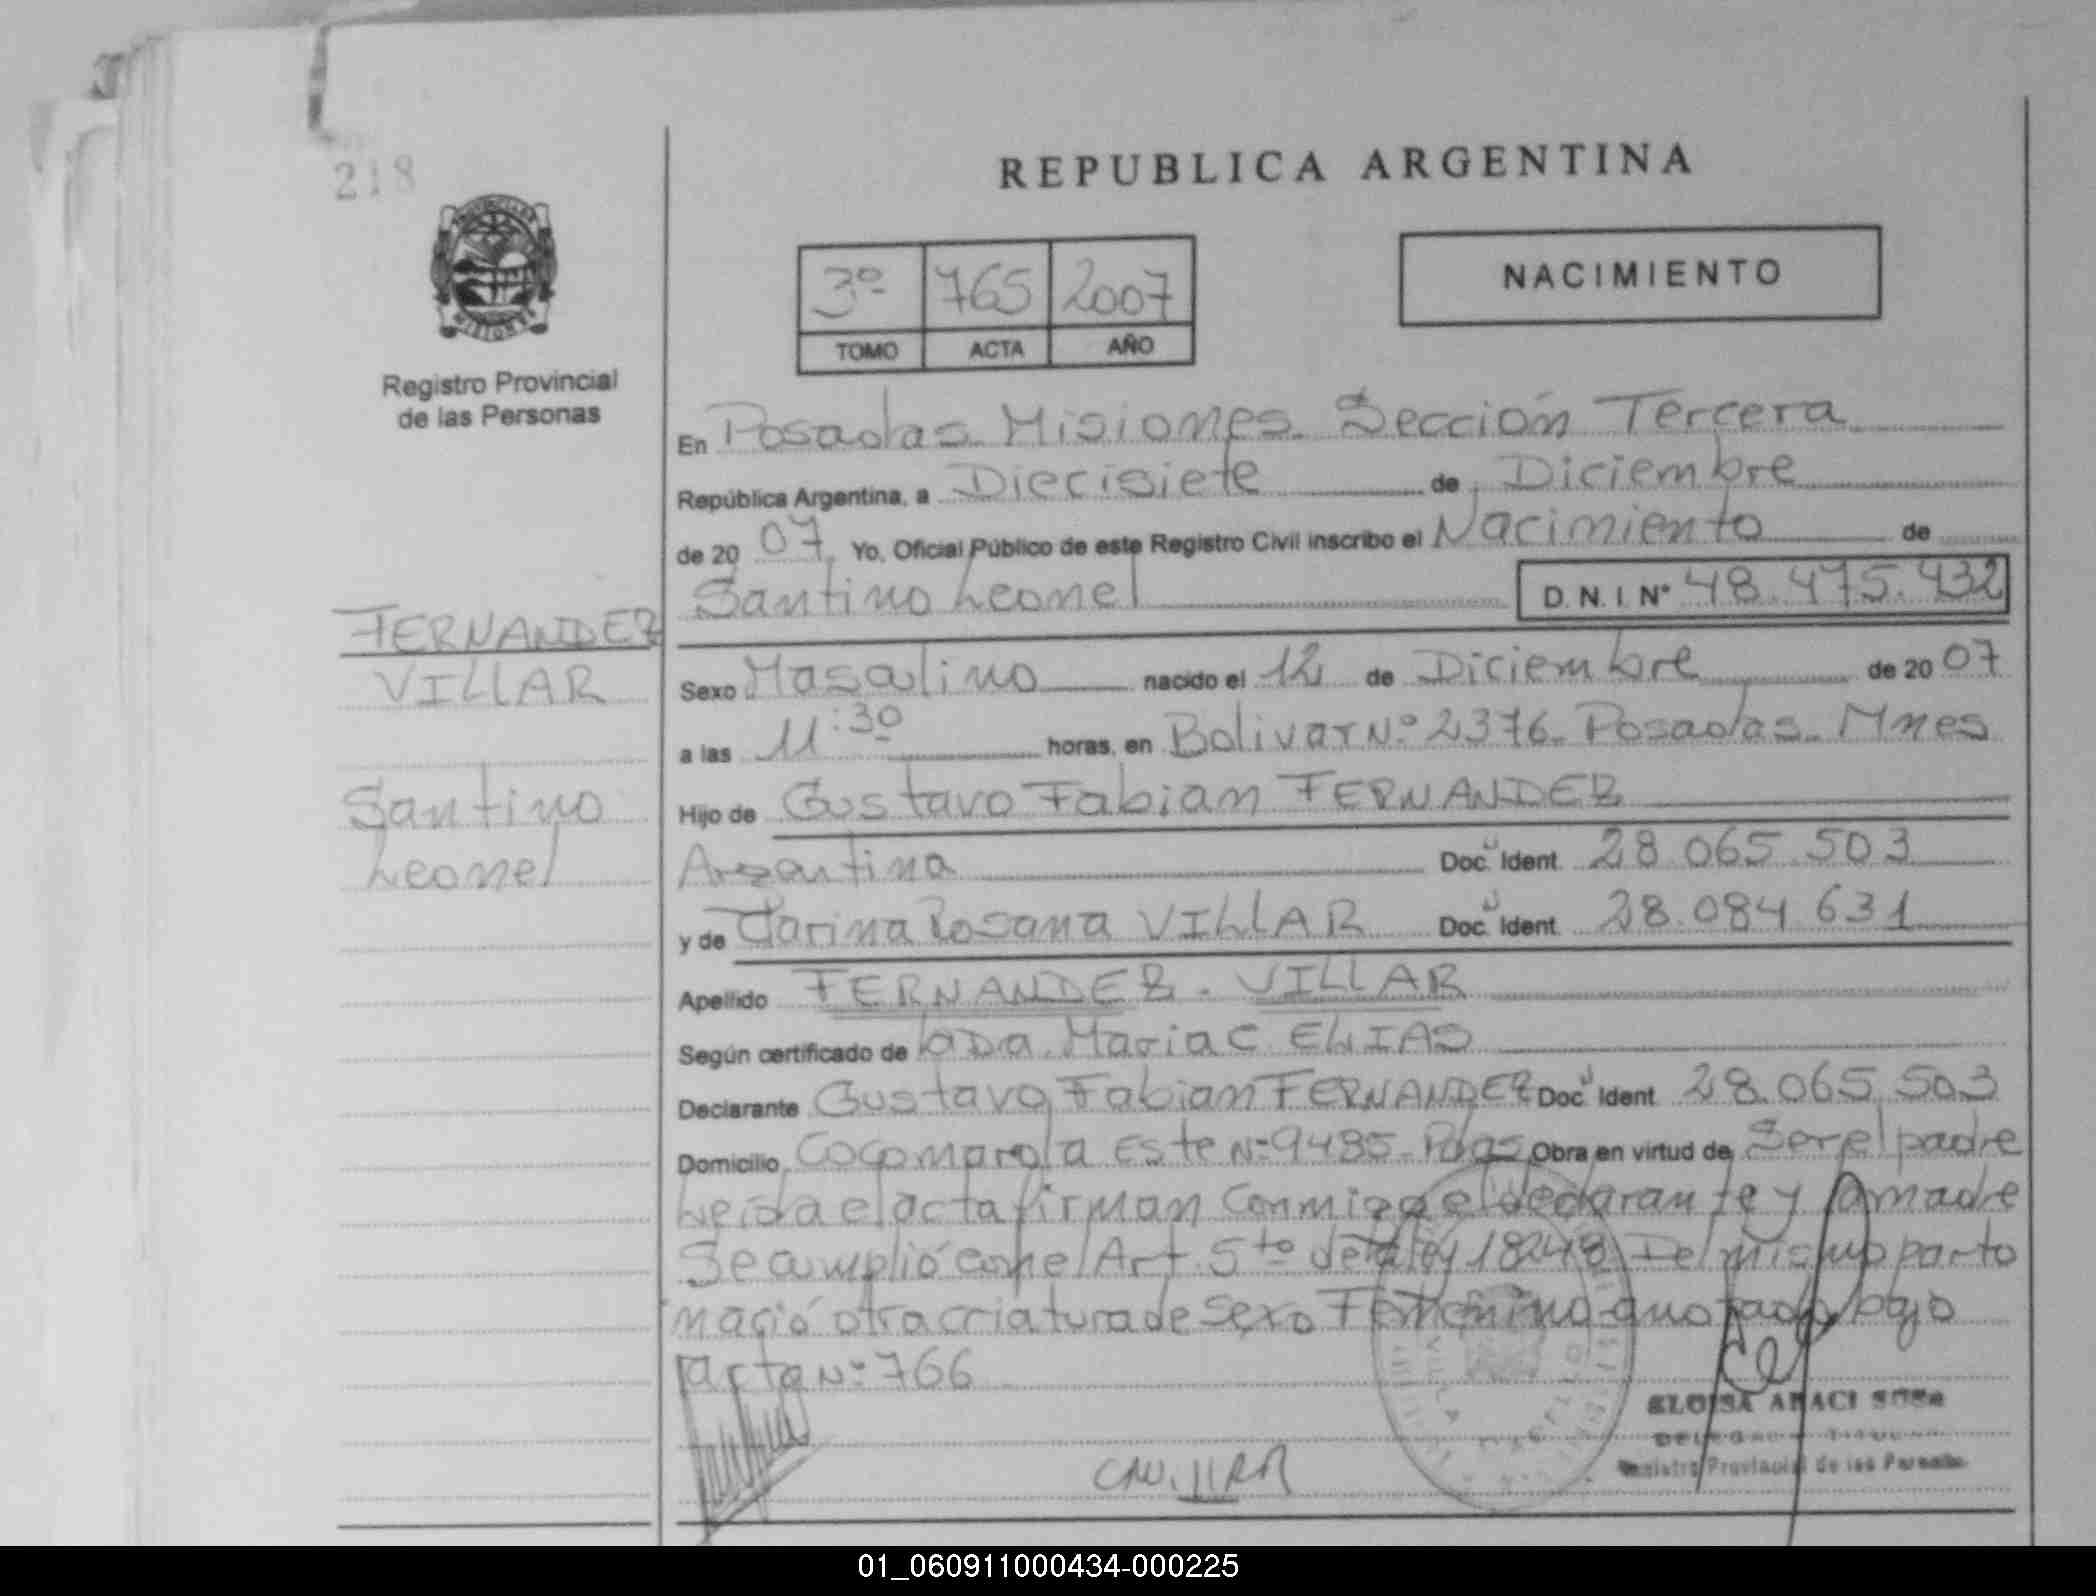 218
REPUBLICA ARGENTINA
PROVINCIA DE
MISIONES
Registro Provincial
de las Personas
3º 765 2007
TOMO ACTA AÑO
NACIMIENTO
En Posadas Misiones. Sección Tercera
República Argentina, a Diecisiete de Diciembre
de 20 07 Yo, Oficial Público de este Registro Civil inscribo el Nacimiento de
Santino Leonel D.N.I. Nº 48.475.432
FERNANDEZ
VILLAR
Santino
Leonel
Sexo Masculino nacido el 12 de Diciembre de 20 07
a las 11:30 horas, en Bolivar Nº 2376. Posadas. Mnes
Hijo de Gustavo Fabian FERNANDEZ
Argentina Doc. Ident. 28.065.503
y de Rosana VILLAR Doc. Ident. 28.084.631
Apellido FERNANDEZ . VILLAR
Según certificado de Maria C. ELIAS
Declarante Gustavo Fabian FERNANDEZ Doc. Ident. 28.065.503
Domicilio Cocomarola Este Nº 9485 - Pdas Obra en virtud de Ser el padre
Leida el acta firman conmigo el declarante y la madre
Se cumplió con el Art. 5to de la ley 18248. Del mismo parto
nació otra criatura de sexo Femenino anotada bajo
acta Nº 766
ELOISA ARACI SOSA
Registro Provincial de las Personas
01_060911000434-000225